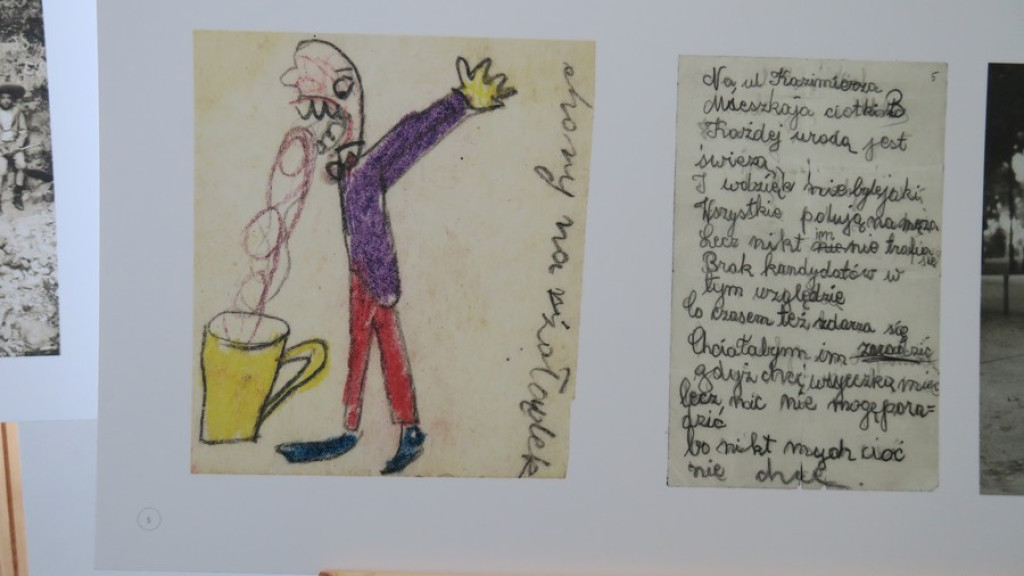 chory na rzołądek
5
Na ul Kazimierza
Mieszkają ciotki B
Każdej urodą jest
świeża
I wdzięk niebylejaki.
Wszystkie polują na męża
Lecz nikt im nie trafia się
Brak kandydatów w
tym względzie
Co czasem też zdarza się
Chciałabym im zaradzić
gdyż chcę wujeczka mieć
lecz nic nie mogę pora=
dzić
bo nikt mych cioć
nie chce.
5